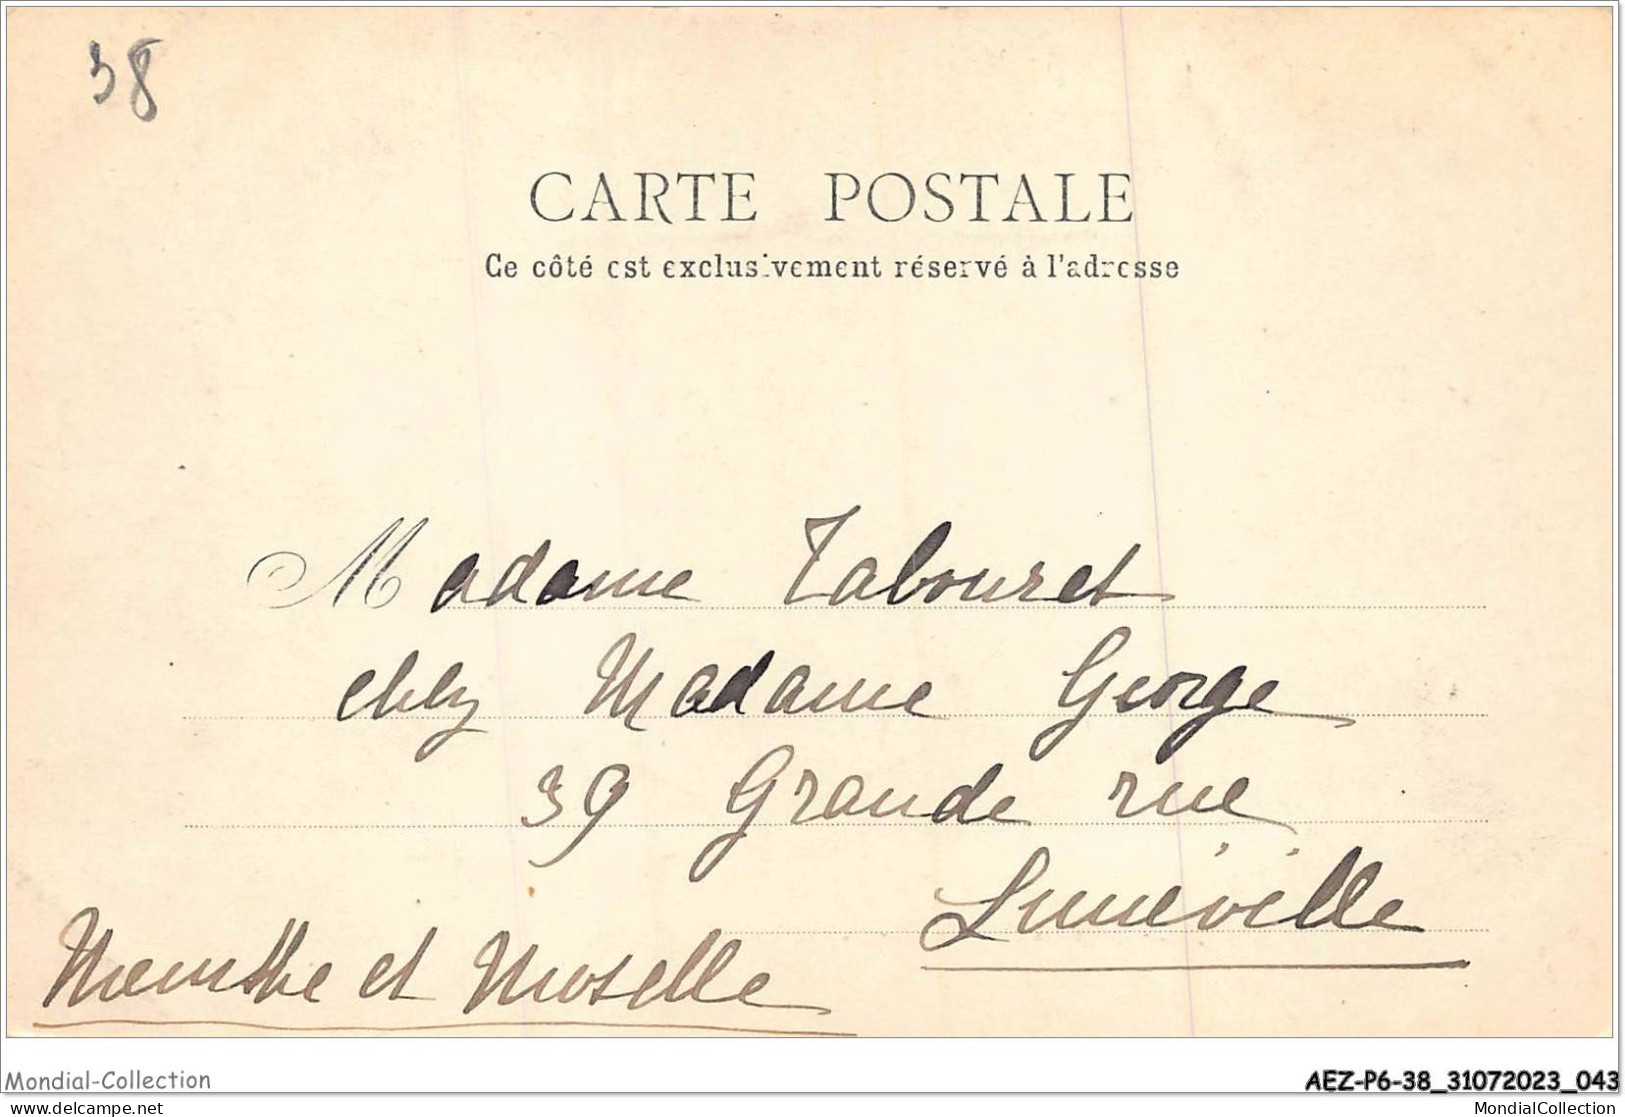 38
CARTE POSTALE
Ce côté est exclusivement réservé à l'adresse
Madame Tabouret
chez Madame George
39 Grande rue
Lunéville
Meurthe et Moselle
Mondial-Collection
AEZ-P6-38_31072023_043
www.delcampe.net
MondialCollection